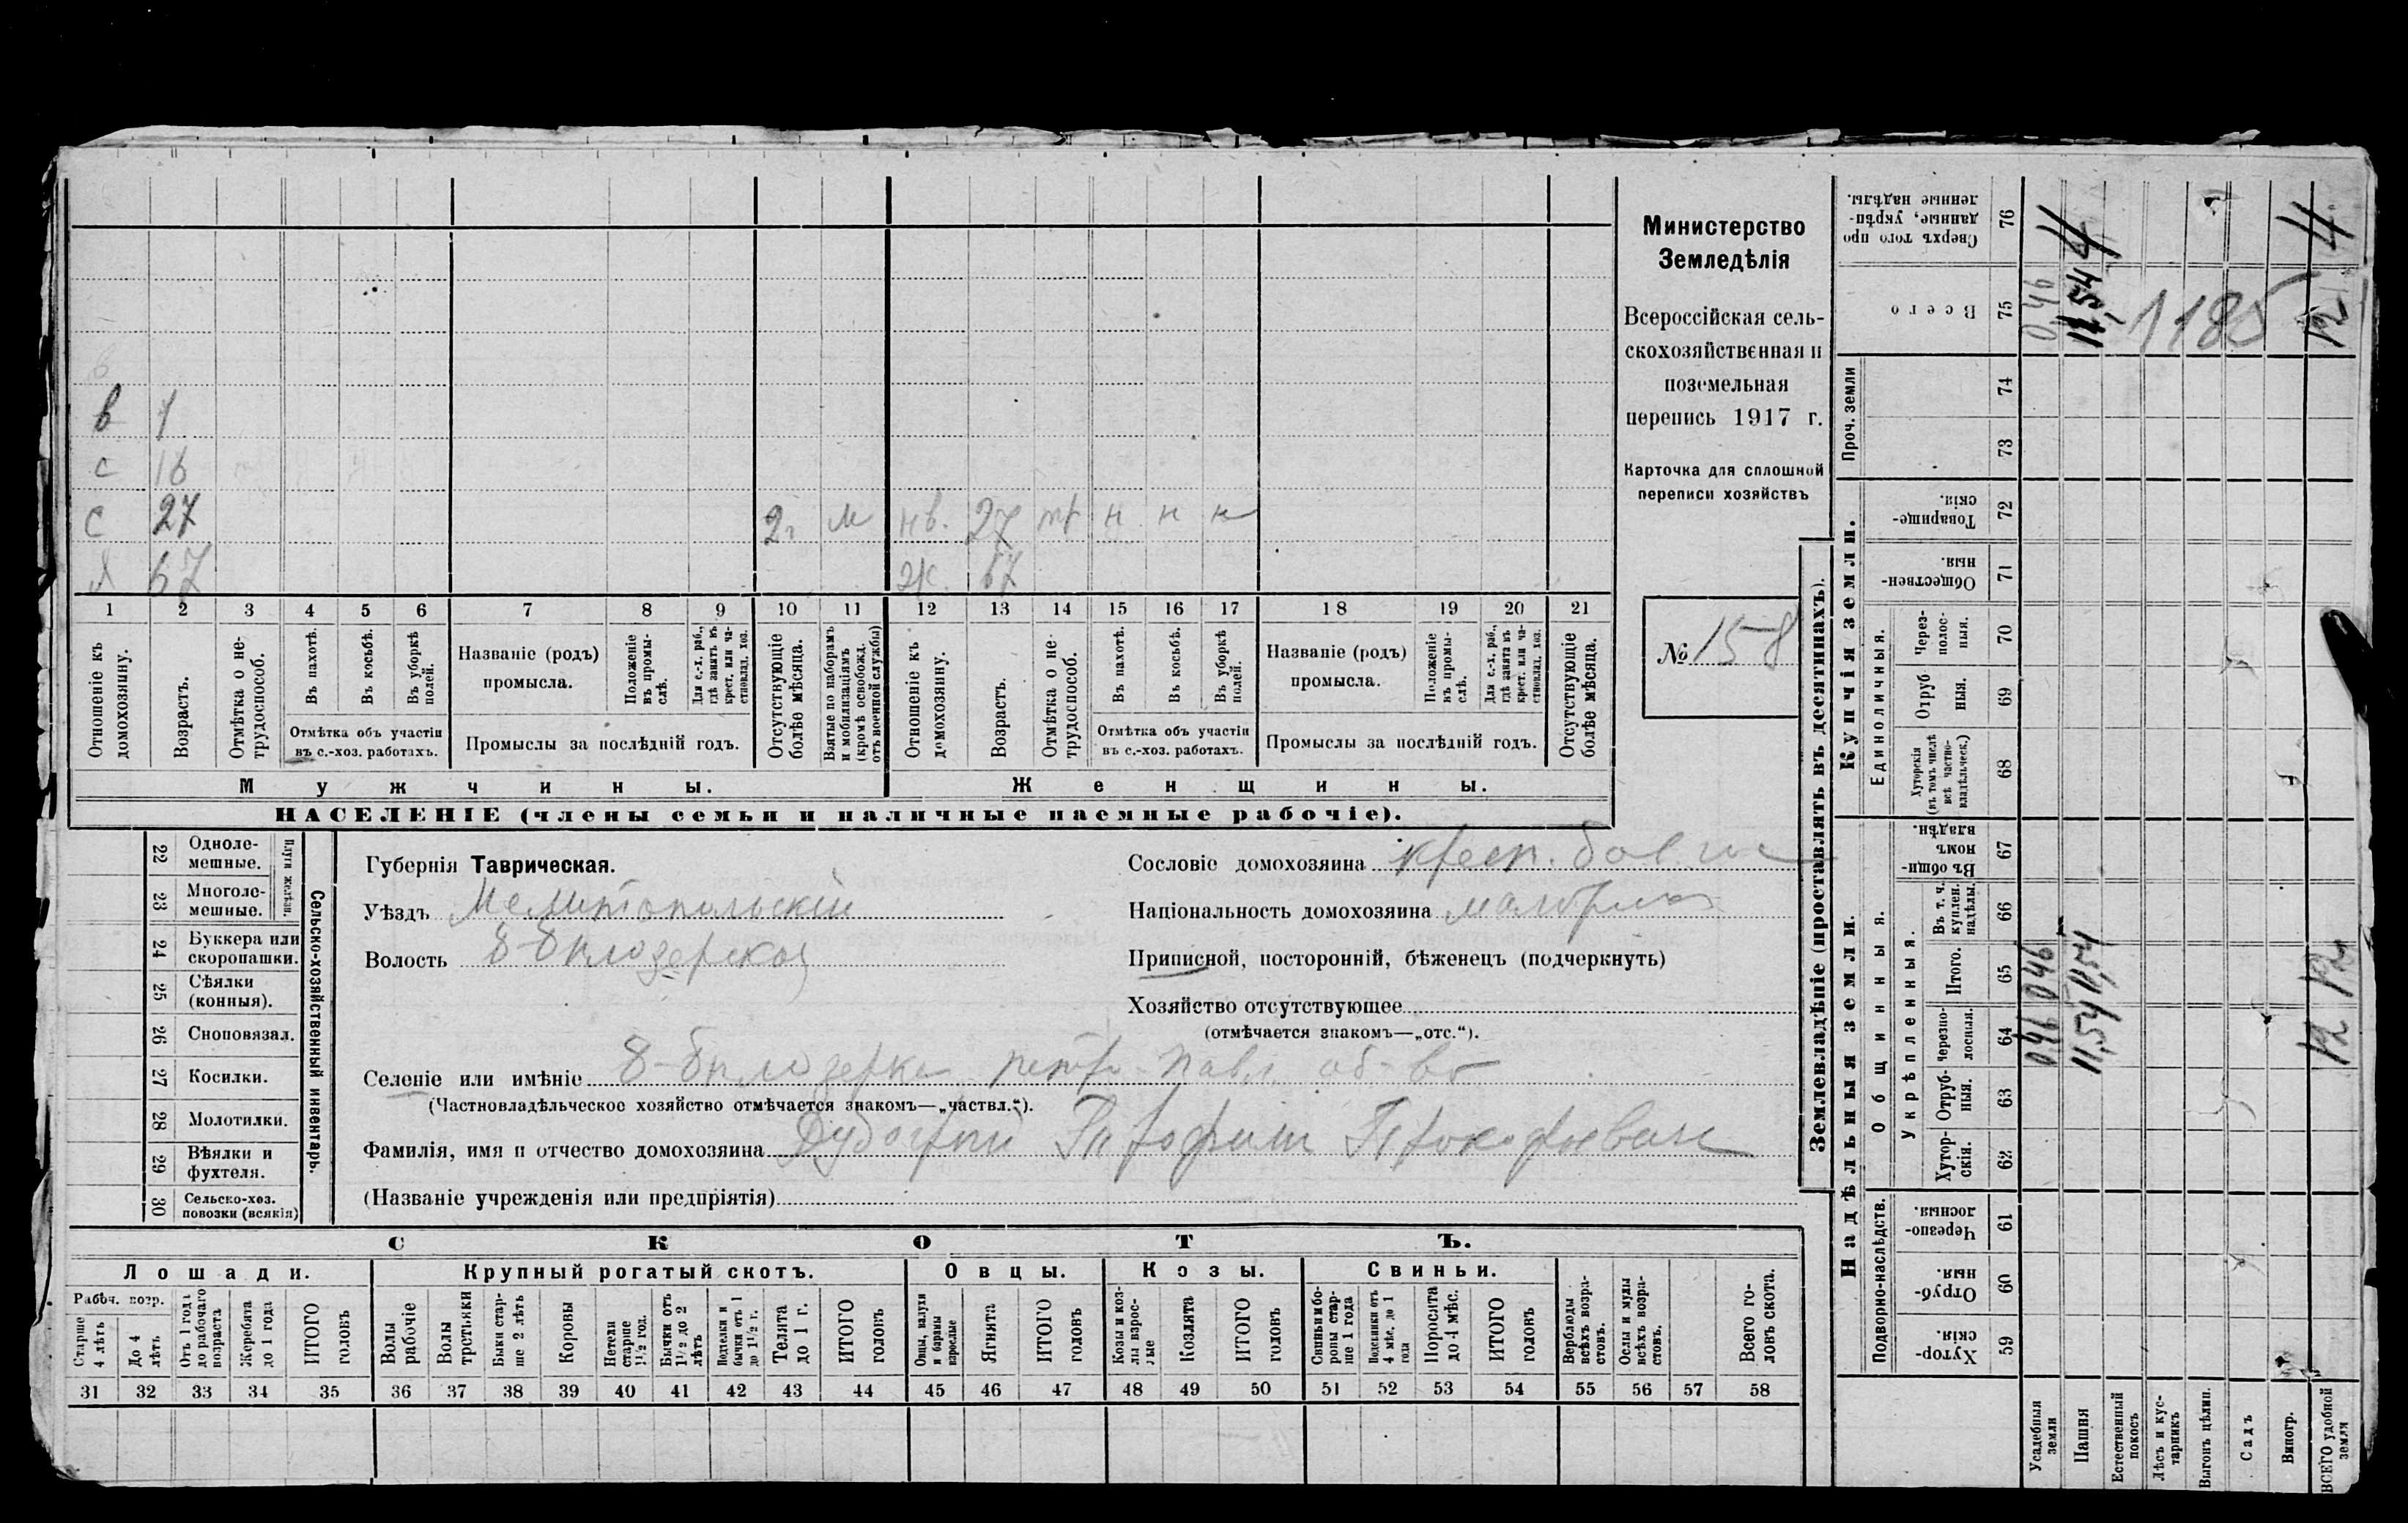 в 1
с 16
с 27 2 г м нв. 27 тр н н н
я 67 ж. 67
1 2 3 4 5 6 7 8 9 10 11 12 13 14 15 16 17 18 19 20 21
Отношеніе къ домохозяину.
Возрастъ.
Отмѣтка о не-трудоспособ.
Въ пахотѣ.
Въ косьбѣ.
Въ уборкѣ полей.
Отмѣтка объ участіи
въ с.-хоз. работахъ.
Названіе (родъ)
промысла.
Положеніе въ промы-слѣ.
Для с.-х. раб., гдѣ занятъ въ крест. или ча-стновлад. хоз.
Промыслы за послѣдній годъ.
Отсутствующіе болѣе мѣсяца.
Взятые по наборамъ и мобилизаціямъ (кромѣ освобожд. отъ военной службы)
Отношеніе къ домохозяину.
Возрастъ.
Отмѣтка о не-трудоспособ.
Въ пахотѣ.
Въ косьбѣ.
Въ уборкѣ полей.
Отмѣтка объ участіи
въ с.-хоз. работахъ.
Названіе (родъ)
промысла.
Положеніе въ промы-слѣ.
Для с.-х. раб., гдѣ занята въ крест. или ча-стновлад. хоз.
Промыслы за послѣдній годъ.
Отсутствующіе болѣе мѣсяца.
Мужчины.
Женщины.
НАСЕЛЕНІЕ (члены семьи и наличные наемные рабочіе).
Министерство
Земледѣлія
Всероссійская сель-
скохозяйственная и
поземельная
перепись 1917 г.
Карточка для сплошной
переписи хозяйствъ
№ 158
22 Одноле-мешные.
23 Многоле-мешные.
Плуги желѣзн.
24 Буккера или скоропашки.
25 Сѣялки (конныя).
26 Сноповязал.
27 Косилки.
28 Молотилки.
29 Вѣялки и фухтеля.
30 Сельско-хоз. повозки (всякія)
Сельско-хозяйственный инвентарь.
Губернія Таврическая.
Уѣздъ Мелитопольскій
Волость В-Бѣлозерская
Сословіе домохозяина крест.
Національность домохозяина
Приписной, посторонній, бѣженецъ (подчеркнуть)
Хозяйство отсутствующее
(отмѣчается знакомъ—„отс.“).
Селеніе или имѣніе В-Бѣлозерка петро-павл. об-во
(Частновладѣльческое хозяйство отмѣчается знакомъ—„частвл.“).
Фамилія, имя и отчество домохозяина Прокофьевич
(Названіе учрежденія или предпріятія)
СКОТЪ.
Лошади. Крупный рогатый скотъ. Овцы. Козы. Свиньи.
Рабоч. возр.
Старше 4 лѣтъ
До 4 лѣтъ
Отъ 1 года до рабочаго возраста
Жеребята до 1 года
ИТОГО головъ
Волы рабочіе
Волы третьяки
Быки стар-ше 2 лѣтъ
Коровы
Нетели старше 1½ год.
Бычки отъ 1½ до 2 лѣтъ
Подтелки и бычки отъ 1 до 1½ г.
Телята до 1 г.
ИТОГО головъ
Овцы, валухи и бараны взрослые
Ягнята
ИТОГО головъ
Козы и коз-лы взрос-лые
Козлята
ИТОГО головъ
Свиньи и бо-ровы стар-ше 1 года
Подсвинки отъ 4 мѣс. до 1 года
Поросята до 4 мѣс.
ИТОГО головъ
Верблюды всѣхъ возра-стовъ.
Ослы и мулы всѣхъ возра-стовъ.
Всего го-ловъ скота.
31 32 33 34 35 36 37 38 39 40 41 42 43 44 45 46 47 48 49 50 51 52 53 54 55 56 57 58
Землевладѣніе (проставлять въ десятинахъ).
Надѣльныя земли.
Купчія земли.
Проч. земли
Подворно-наслѣдств.
Общинныя.
Укрѣпленныя.
Единоличныя.
Сверхъ того про данные, укрѣп-ленные надѣлы. 76
Всего 75
74
73
Товарище-скія. 72
Обществен-ныя. 71
Через-полос-ныя. 70
Отруб ныя. 69
Хуторскія (въ томъ числѣ всѣ частно-владѣльческ.) 68
Въ общи-номъ владѣн. 67
Въ т. ч. куплен. надѣлы. 66
Итого. 65
Черезпо-лосныя. 64
Отруб-ныя. 63
Хутор-скія. 62
Черезпо-лосныя. 61
Отруб-ныя. 60
Хутор-скія. 59
Усадебныя земли 0,46 0,46 0,46
Пашня 11,54 11,54 11,54
Естественный покосъ
Лѣсъ и кус-тарникъ
Выгонъ цѣлин.
Садъ
Виногр.
ВСЕГО удобной земли 12 12 12
1185